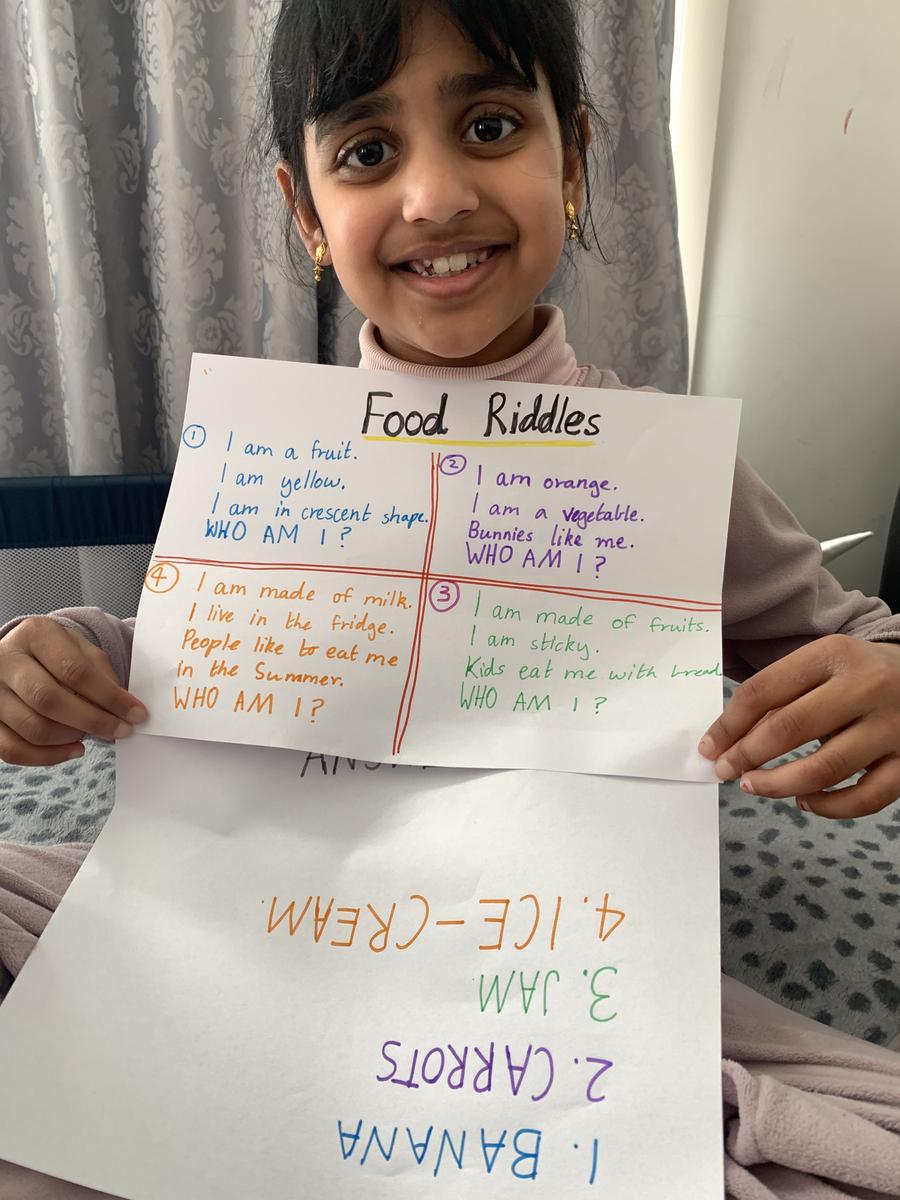 Food Riddles
1 I am a fruit.
I am yellow.
I am in crescent shape.
WHO AM I?
2 I am orange.
I am a vegetable.
Bunnies like me.
WHO AM I?
4 I am made of milk.
I live in the fridge.
People like to eat me
in the Summer.
WHO AM I?
3 I am made of fruits.
I am sticky.
Kids eat me with bread
WHO AM I?
1. BANANA
2. CARROTS
3. JAM
4. ICE-CREAM.